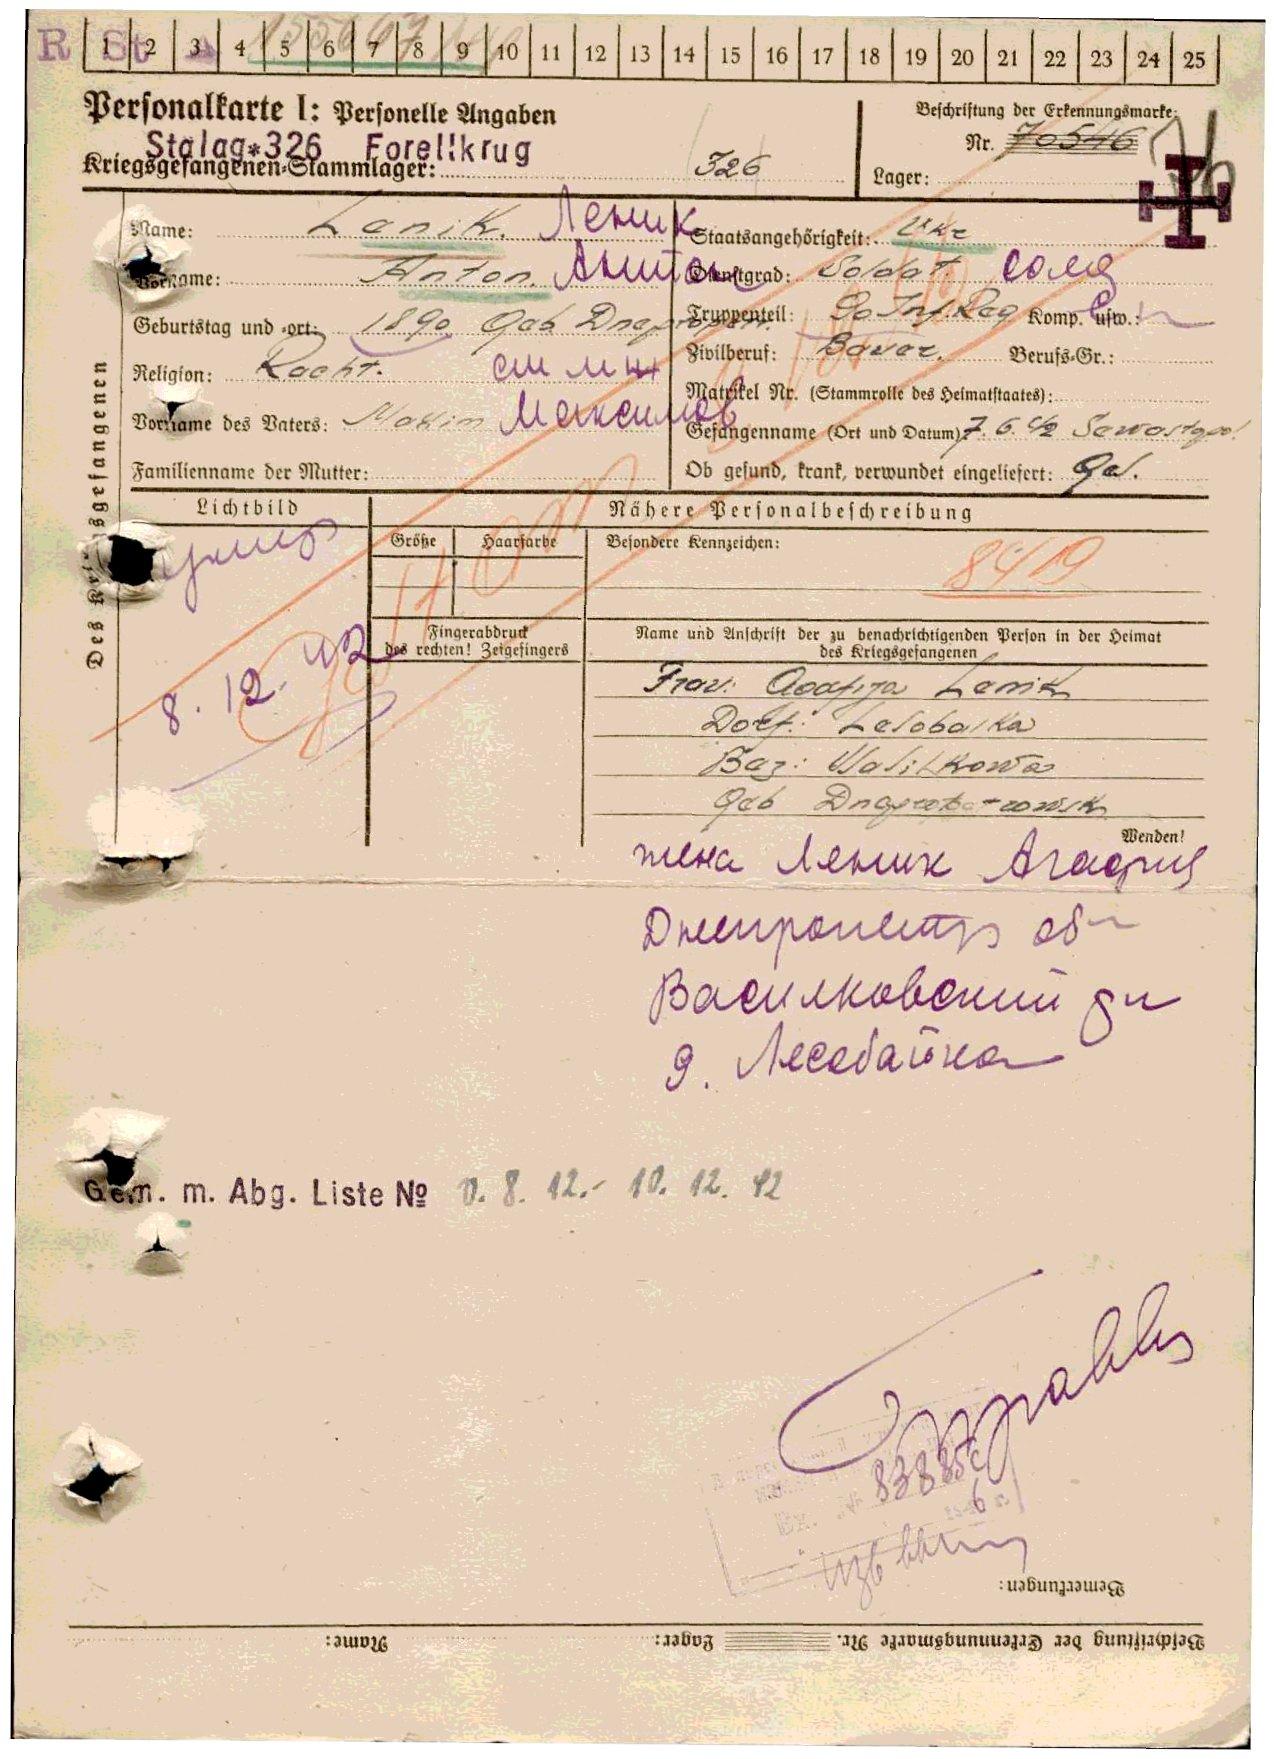 R St
1 2 3 4 5 6 7 8 9 10 11 12 13 14 15 16 17 18 19 20 21 22 23 24 25
Personalkarte I: Personelle Angaben
Stalag*326 Forellkrug
Kriegsgefangenen-Stammlager: 326
Beschriftung der Erkennungsmarke:
Nr. 70546
Lager:
Des Kriegsgefangenen
Name: Lenik. Леник
Vorname: Anton. Антон
Geburtstag und -ort: 1890 Geb Dnepropetr.
Religion:
Vorname des Vaters: Makim Максимов
Familienname der Mutter:
Staatsangehörigkeit: Ukr
Dienstgrad: Soldat. солд
Truppenteil: Inf. Reg Komp. usw.:
Zivilberuf: Bauer. Berufs-Gr.:
Matrikel Nr. (Stammrolle des Heimatstaates):
Gefangenname (Ort und Datum): 7. 6. 42 Sewastopol
Ob gesund, krank, verwundet eingeliefert: Ges.
Lichtbild
умер
8. 12. 42
Nähere Personalbeschreibung
Größe Haarfarbe Besondere Kennzeichen:
8419
Fingerabdruck
des rechten! Zeigefingers
Name und Anschrift der zu benachrichtigenden Person in der Heimat
des Kriegsgefangenen
Frau: Agafija Lenik
Dorf: Lesobaika
Wasilkowa
Geb Dnepropetrowsk
Wenden!
жена Леник Агафия
Днепропетр обл
Василковский рн
д. Лесобайка
Gem. m. Abg. Liste № 0. 8. 12.- 10. 12. 42
Вх. № 83885с
Bemerkungen:
Beschriftung der Erkennungsmarke Nr. Lager: Name: